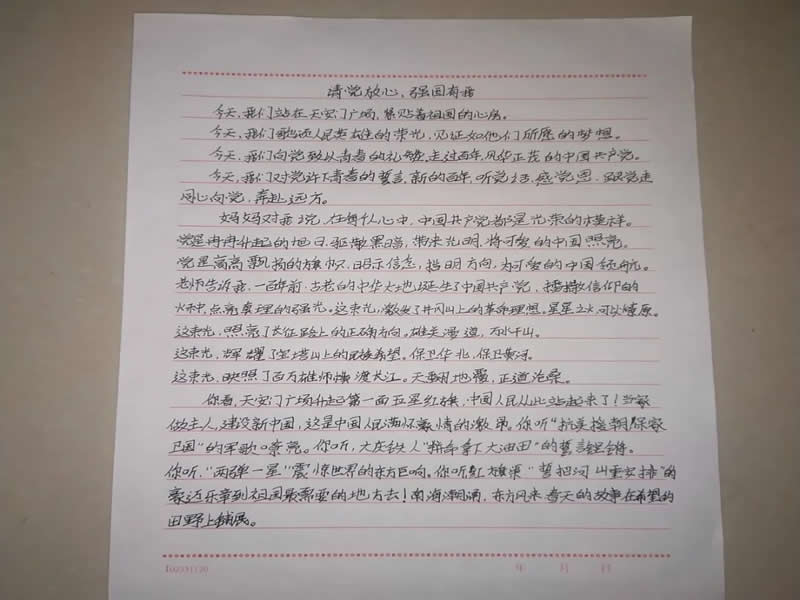 请党放心、强国有我
今天,我们站在天安门广场,紧贴着祖国的心房。
今天,我们歌颂人民英雄的荣光,见证如他们所愿的梦想。
今天,我们向党致以青春的礼赞,走过百年,风华正茂的中国共产党。
今天,我们对党许下青春的誓言,新的百年,听党话,感党恩,跟党走
同心向党,奔赴远方。
妈妈对我说,在每个人心中,中国共产党都是光荣的模样。
党是冉冉升起的旭日,驱散黑暗,带来光明,将可爱的中国照亮。
党是高高飘扬的旗帜,昭示信念,指明方向,为可爱的中国领航。
老师告诉我,一百年前,古老的中华大地诞生了中国共产党,播撒信仰的
火种,点亮真理的强光。这束光,激发了井冈山上的革命理想。星星之火,可以燎原。
这束光,照亮了长征路上的正确方向。雄关漫道,万水千山。
这束光,辉耀了宝塔山上的民族希望。保卫华北,保卫黄河。
这束光,映照了百万雄师横渡大江。天翻地覆,正道沧桑。
你看,天安门广场升起第一面五星红旗,中国人民从此站起来了!当家
做主人,建设新中国,这是中国人民满怀豪情的激昂。你听"抗美援朝,保家
卫国"的军歌嘹亮。你听,大庆铁人"拼命拿下大油田"的誓言铿锵。
你听,"两弹一星"震惊世界的东方巨响。你听红旗渠"誓把河山重安排"的
豪迈 到祖国最需要的地方去!南海潮涌,东方风来,春天的故事在希望的
田野上铺展。
年 月 日